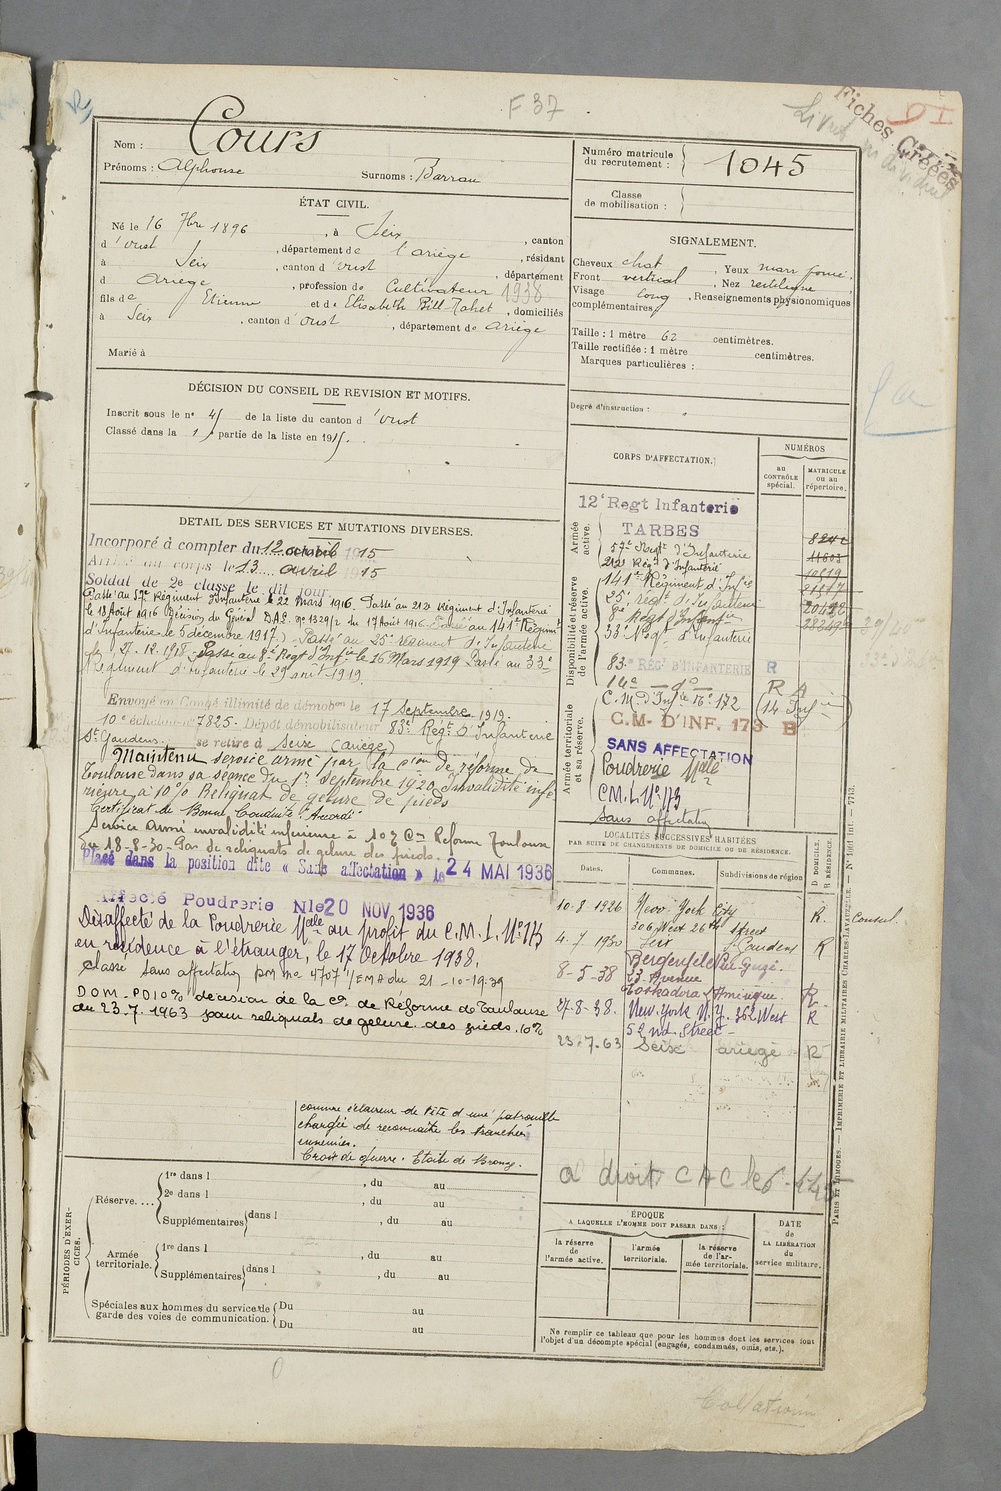 F 37
Fiches Créées
Nom : Cours
Prénoms : Alphonse
Surnoms : Barrau
Numéro matricule du recrutement : 1045
Classe de mobilisation :
ÉTAT CIVIL.
Né le 16 7bre 1896 , à Seix , canton
d'oust , département de l'ariège , résidant
à Seix , canton d'oust , département
d ariège , profession de Cultivateur 1938
fils de Etienne et de Elisabeth , domiciliés
à Seix , canton d'oust , département de ariège
Marié à
SIGNALEMENT.
Cheveux chat , Yeux marr foncé.
Front vertical , Nez rectiligne
Visage long , Renseignements physionomiques
complémentaires
Taille : 1 mètre 62 centimètres.
Taille rectifiée : 1 mètre centimètres.
Marques particulières :
Degré d'instruction :
DÉCISION DU CONSEIL DE REVISION ET MOTIFS.
Inscrit sous le n° 45 de la liste du canton d'oust
Classé dans la 1 partie de la liste en 1915.
DETAIL DES SERVICES ET MUTATIONS DIVERSES.
Incorporé à compter du 12 avril 1915
Arrivé au corps le 13 avril 1915
Soldat de 2e classe le dit jour.
Passé au 57e Régiment d'Infanterie le 22 Mars 1916. Passé au 212e Régiment d'Infanterie
le 18 Août 1916 Décision du Général D.A.E. n° 1329/2 du 17 Août 1916. Passé au 141e Régiment
d'Infanterie le 5 décembre 1917. Passé au 25e régiment d'Infanterie
le 27.12.1918. Passé au 8e Regt d'Infie le 16 Mars 1919 Passé au 33e
Régiment d'infanterie le 29 avril 1919.
Envoyé en Congé illimité de démobon le 17 Septembre 1919.
10e échelon n° 7825. Dépôt démobilisateur 83e Régt d'Infanterie
St Gaudens. se retire à Seix (ariège)
Maintenu service armé par la Cion de réforme de
Toulouse dans sa séance du 1er Septembre 1920 Invalidité infé
rieure à 10% Reliquat de gelure de pieds
Certificat de Bonne Conduite "Accordé"
Service Armé invalidité inférieure à 10% Con Reforme Toulouse
du 18-8-30 - Pas de reliquats de gelure des pieds.
Placé dans la position dite « Sans affectation » le 24 MAI 1936
Affecté Poudrerie Nle 20 NOV 1936
Désaffecté de la Poudrerie Nale au profit du C.M.I. N° 173
en résidence à l'étranger, le 17 Octobre 1938.
Classe sans affectation PM n° 4707 1/EMA du 21-10-1939
DOM - PD 10% décision de la Con de Réforme de Toulouse
du 23.7.1963 pour reliquats de gelure des pieds. 10%
comme éclaireur de tête d'une patrouille
chargée de reconnaître les tranchées
ennemies.
Croix de guerre. Etoile de Bronze.
CORPS D'AFFECTATION.
NUMÉROS
au CONTRÔLE spécial.
MATRICULE ou au répertoire.
Armée active.
Disponibilité et réserve de l'armée active.
Armée territoriale et sa réserve.
12e Regt Infanterie
TARBES
57e Regt d'Infanterie
212 Régt d'Infanterie
141e Régiment d'Infie
25e régt d'Infanterie
8e Regt d'Infanterie
33e Regt d'Infanterie
83e RÉGt D'INFANTERIE R
14e — do — R A
C.M. d'Infie N° 172 (14 Infie)
C.M. D'INF. 173 B
SANS AFFECTATION
Poudrerie Nale
C.M.I. N° 173
Sans affectation
LOCALITÉS SUCCESSIVES HABITÉES
PAR SUITE DE CHANGEMENTS DE DOMICILE OU DE RÉSIDENCE.
Dates. Communes. Subdivisions de région D DOMICILE. R RÉSIDENCE.
10-8-1926 New York City R. Consul.
306 West 26th Street
4-7-1930 Seix St Gaudens R
8-5-38 Bergenfield New-Jersey
23 Avenue
Amérique. R
27-8-38. New York N.Y. 362 West R
52nd Street -
23-7-63 Seix ariège R
a droit CAC
PÉRIODES D'EXERCICES.
Réserve.... 1re dans l , du au
2e dans l , du au
Supplémentaires dans l , du au
Armée territoriale. 1re dans l , du au
Supplémentaires dans l , du au
Spéciales aux hommes du service de garde des voies de communication. Du au
Du au
ÉPOQUE
A LAQUELLE L'HOMME DOIT PASSER DANS :
la réserve de l'armée active.
l'armée territoriale.
la réserve de l'armée territoriale.
DATE de LA LIBÉRATION du service militaire.
Ne remplir ce tableau que pour les hommes dont les services font
l'objet d'un décompte spécial (engagés, condamnés, omis, etc.).
PARIS ET LIMOGES. — IMPRIMERIE ET LIBRAIRIE MILITAIRES CHARLES-LAVAUZELLE.